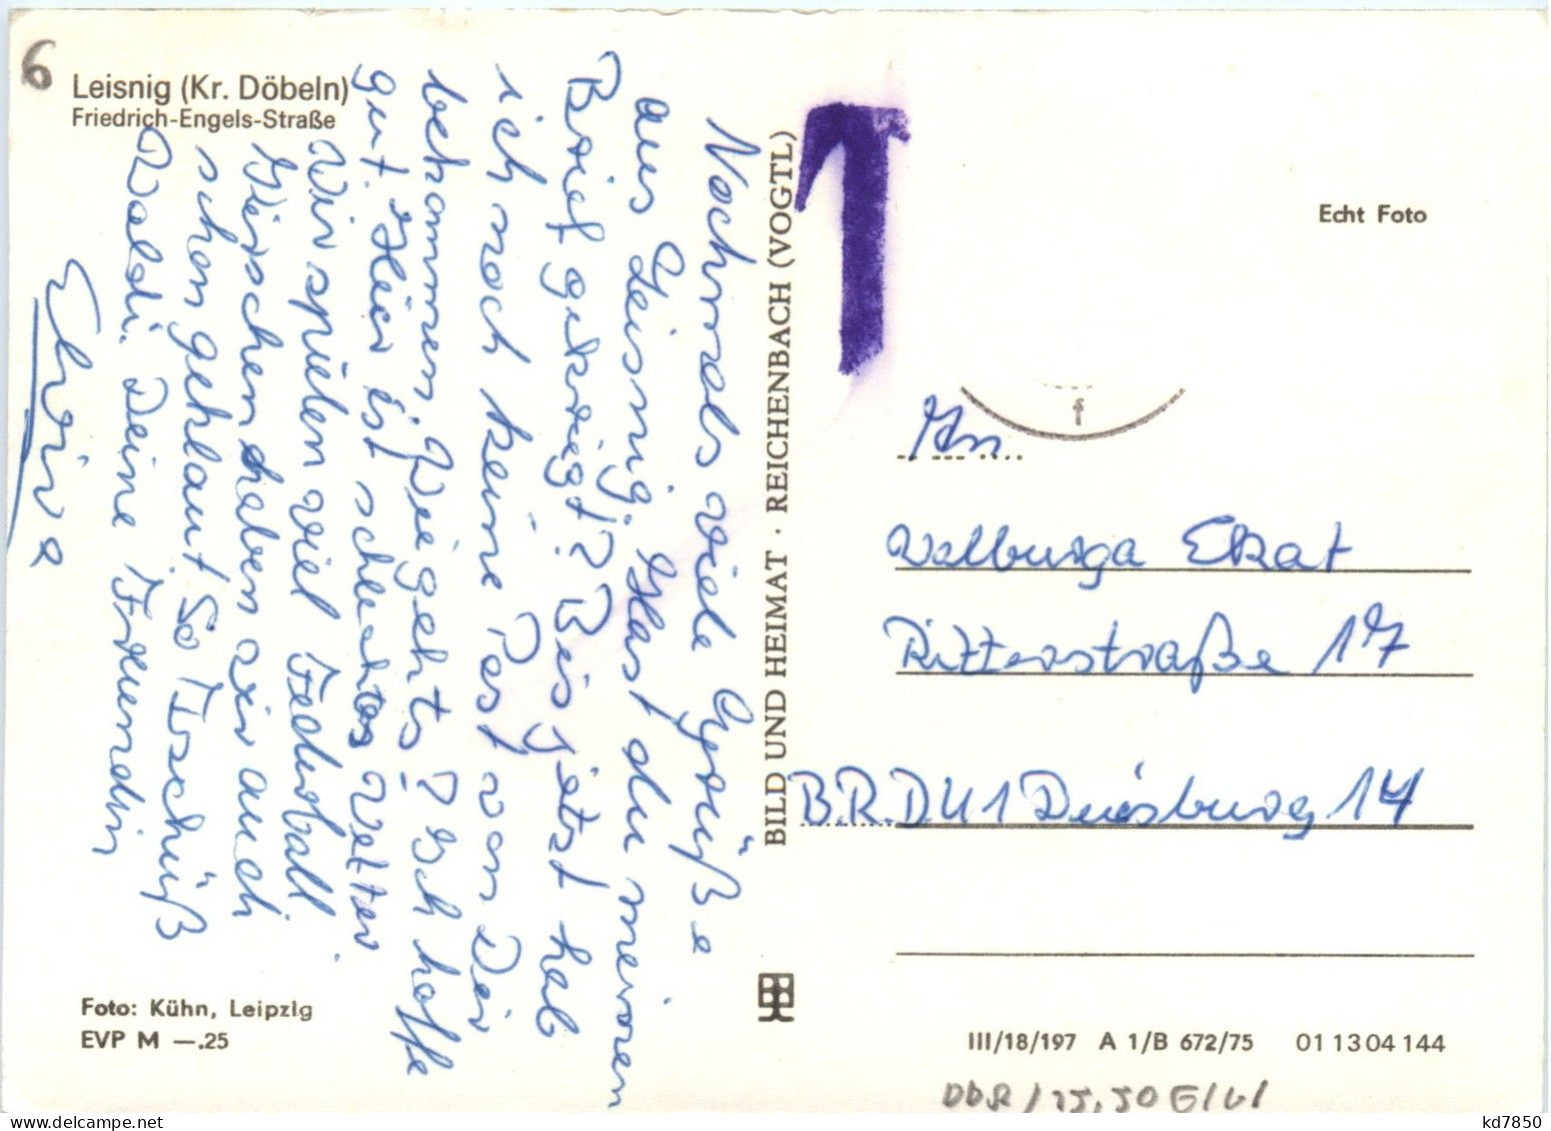 6
Leisnig (Kr. Döbeln)
Friedrich-Engels-Straße
Nochmals viele Grüße
aus Leisnig. Hast du meinen
Brief gekriegt? Bis jetzt hab
ich noch keine Post von Dir
bekommen. Wie gehts? Ich hoffe
gut. Hier ist schlechtes Wetter.
Wir spielen viel Federball
Kirschen haben wir auch
schon geklaut So Tschüß
Waldi. Deine Freundin
Elvira
Foto: Kühn, Leipzig
EVP M —.25
BILD UND HEIMAT · REICHENBACH (VOGTL)
1
Echt Foto
An
Walburga
Ritterstraße 17
B.R.D 41 Duisburg 14
III/18/197 A 1/B 672/75 01 13 04 144
kd7850